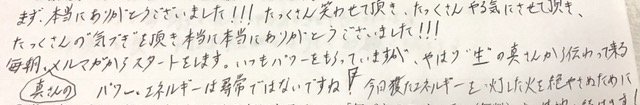 まず、本当にありがとうございました!!! たっくさん笑わせて頂き、たっくさんやる気にさせて頂き、
たっくさんの"気づき"を頂き本当に本当にありがとうございました!!!
毎朝、メルマガからスタートをします。いつもパワーをもらっていますが、やはり"生"の真さんから伝わって来る
真さんの パワー、エネルギーは尋常ではないですね! 今回獲たエネルギーを、灯した火を絶やさぬために